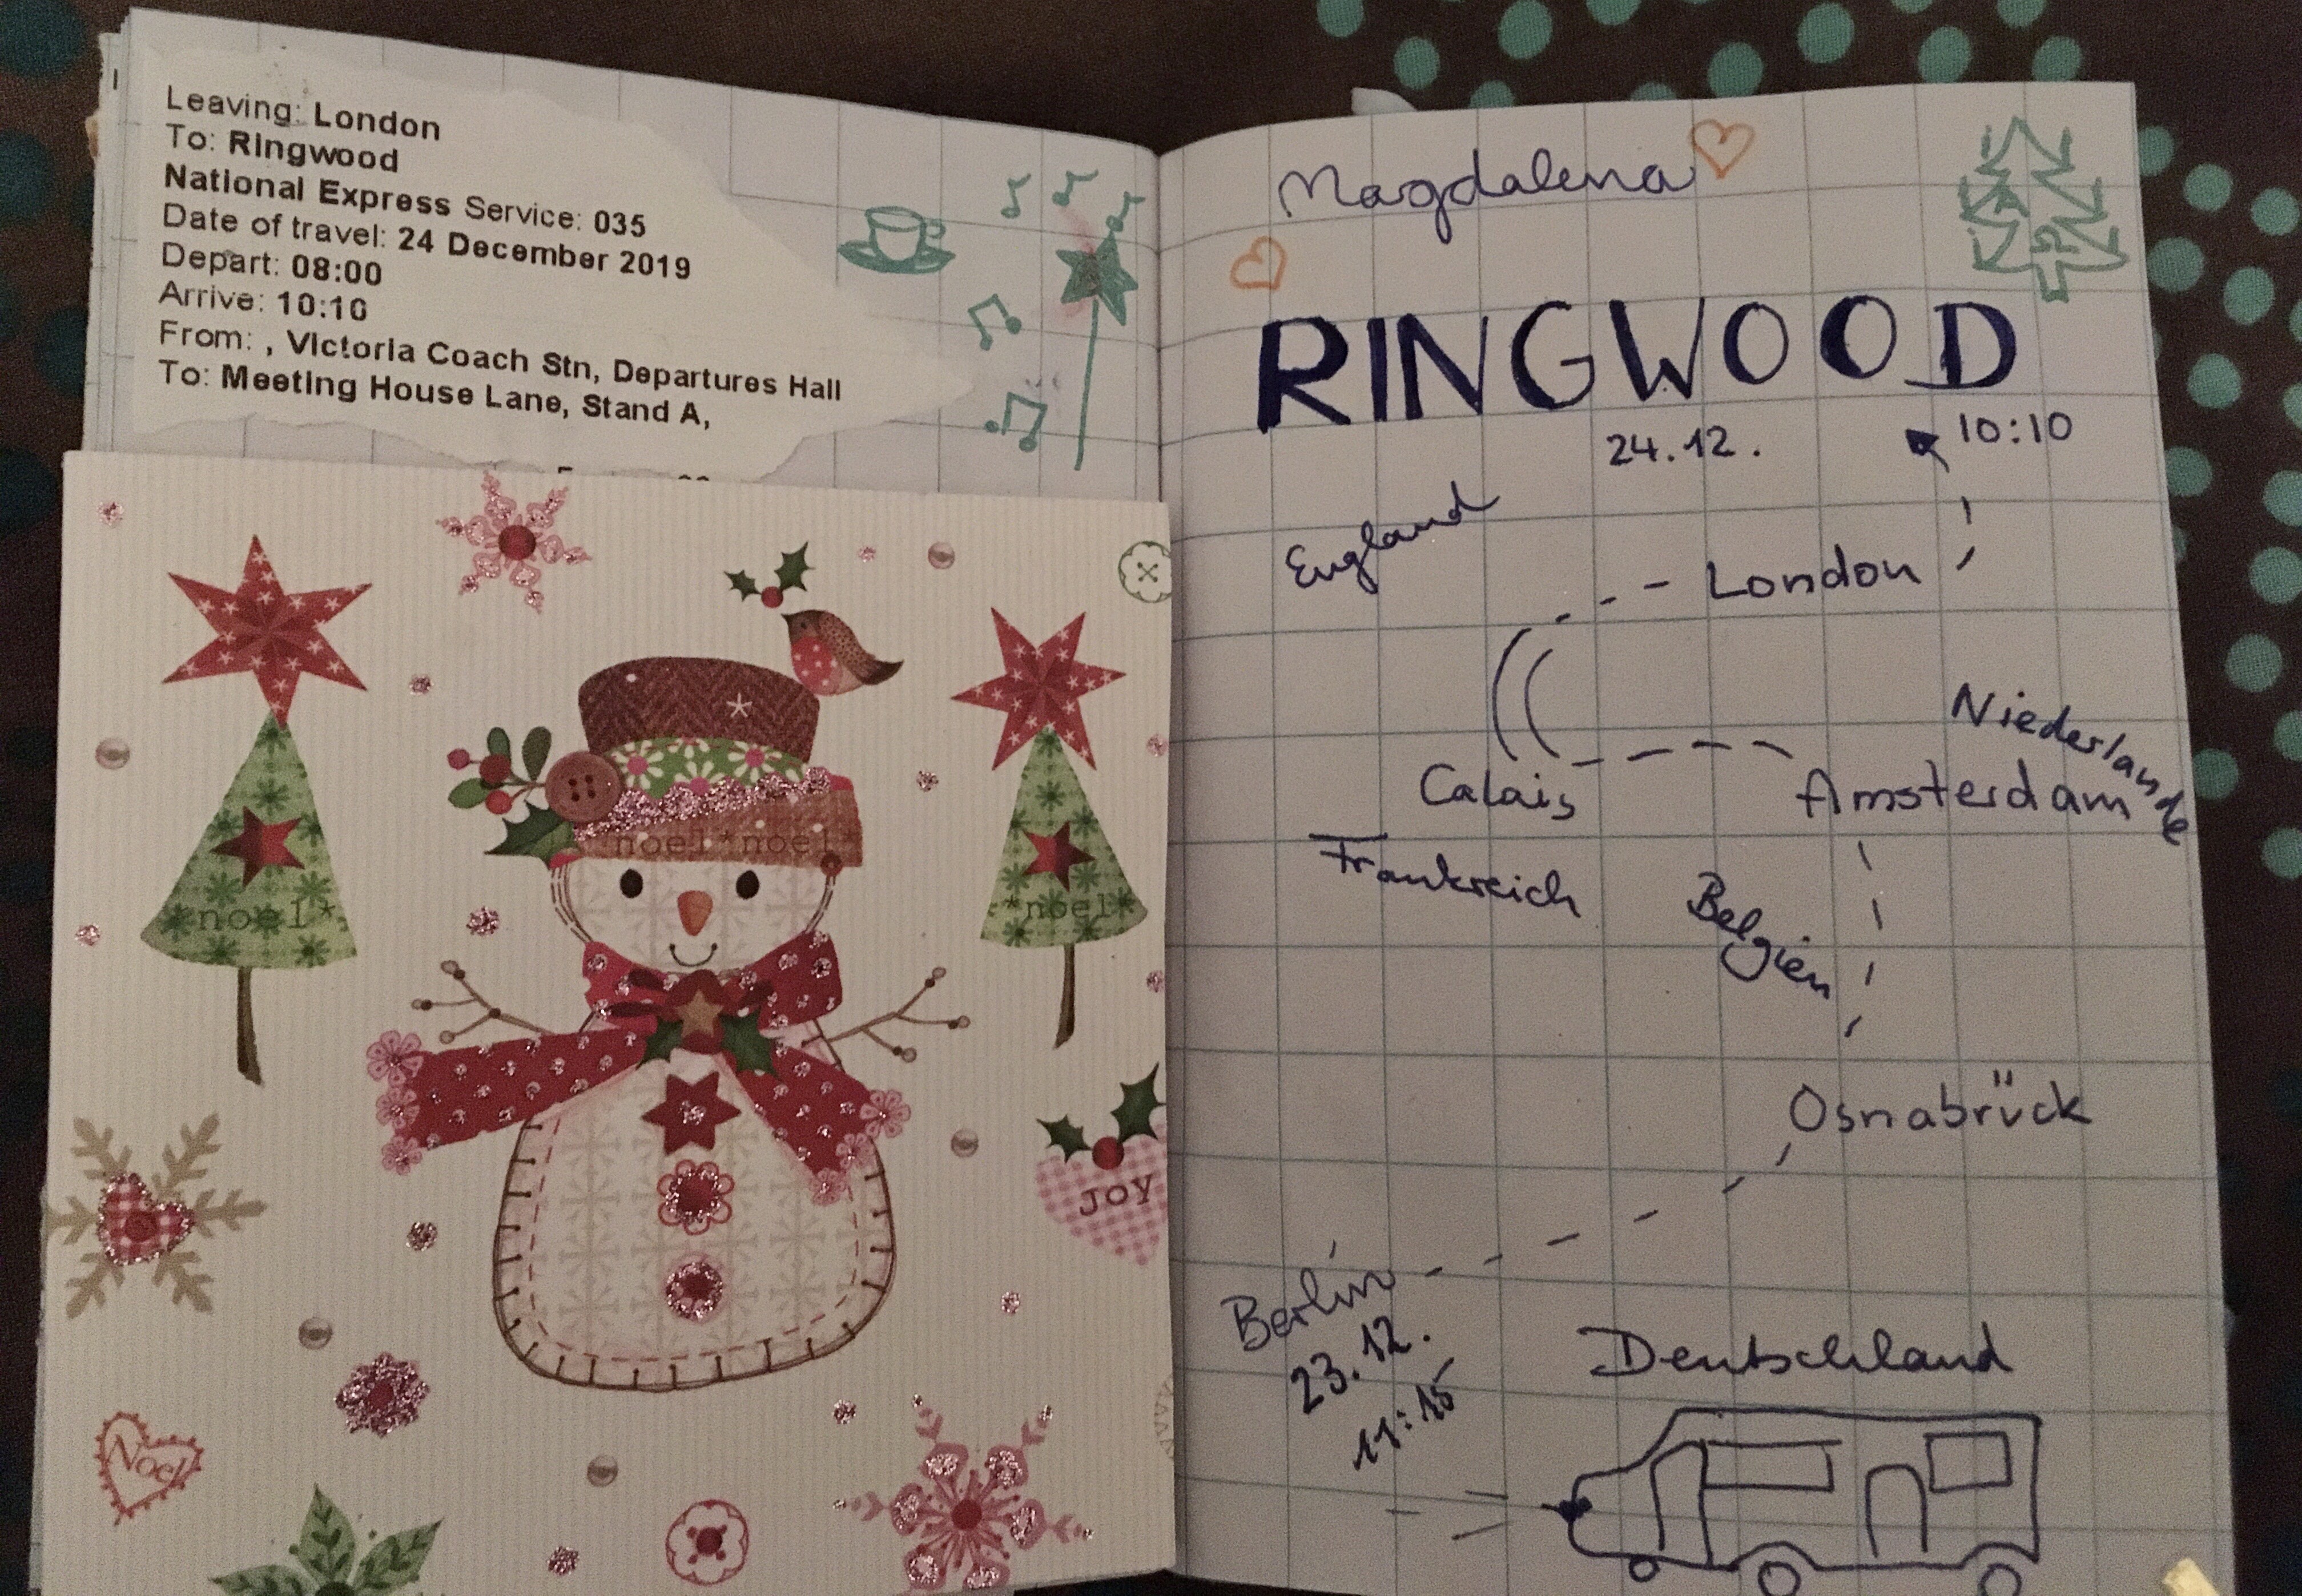 Leaving: London
To: Ringwood
National Express Service: 035
Date of travel: 24 December 2019
Depart: 08:00
Arrive: 10:10
From: , Victoria Coach Stn, Departures Hall
To: Meeting House Lane, Stand A,
noel*noel*
*noel*
*noel*
JOY
Noel
Magdalena
RINGWOOD
24.12.
10:10
England
London
Niederlande
Calais
Amsterdam
Frankreich
Belgien
Osnabrück
Berlin
23.12.
11:15
Deutschland